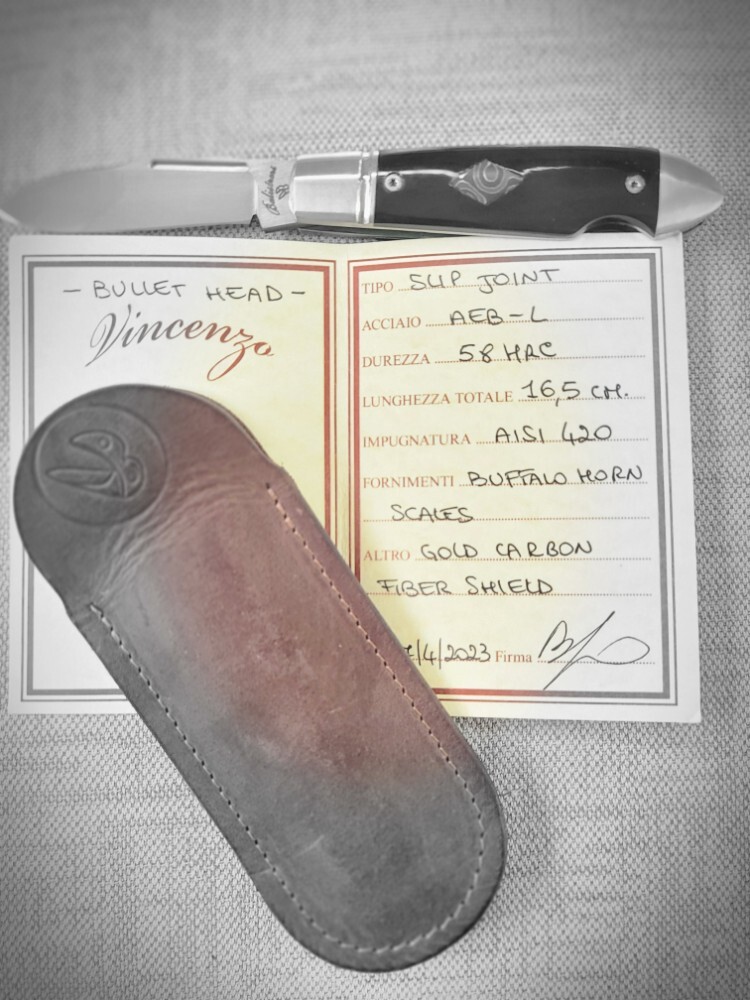 - BULLET HEAD -
Vincenzo
TIPO SLIP JOINT
ACCIAIO AEB-L
DUREZZA 58 HRC
LUNGHEZZA TOTALE 16,5 CM.
IMPUGNATURA AISI 420
FORNIMENTI BUFFALO HORN
SCALES
ALTRO GOLD CARBON
FIBER SHIELD
/4/2023 Firma